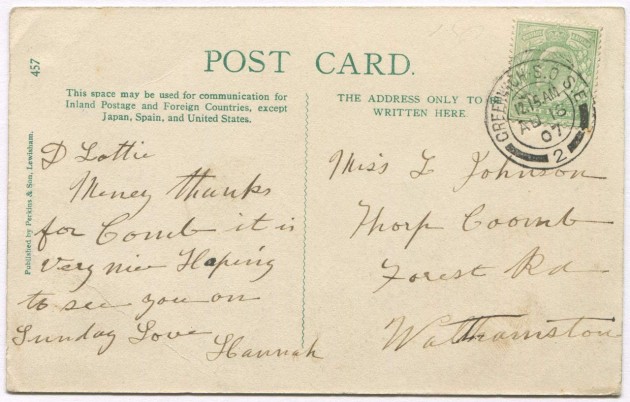 POST CARD.
457
This space may be used for communication for
Inland Postage and Foreign Countries, except
Japan, Spain, and United States.
THE ADDRESS ONLY TO BE
WRITTEN HERE
GREENWICH S.O S.E
12.15 AM
AU 16
07
2
Published by Perkins & Son, Lewisham.
D Lottie
Meney thanks
for Comb it is
very nice Hoping
to see you on
Sunday Love
Hannah
Miss L Johnson
Thorp Coomb
Forest Rd
Walthamston